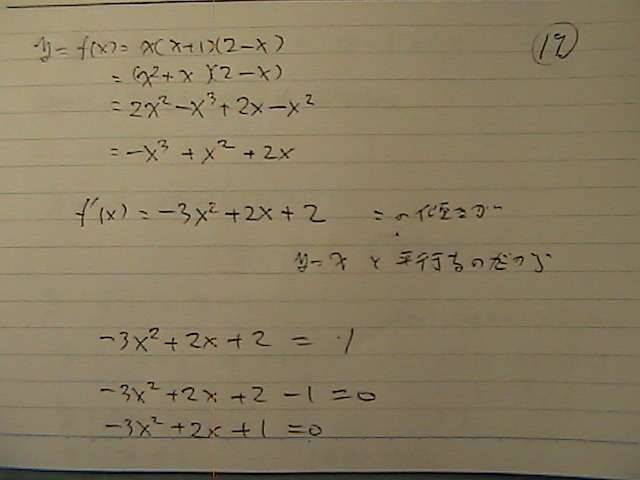 y = f(x) = x(x+1)(2-x)
⑫
= (x²+x)(2-x)
= 2x²-x³+2x-x²
= -x³+x²+2x
f'(x) = -3x²+2x+2 = の が
y=x と 平行
-3x²+2x+2 = 1
-3x²+2x+2-1=0
-3x²+2x+1=0